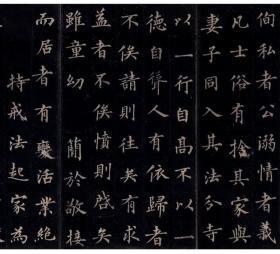 徇私者公溺情者義
凡士俗有捨其家與
妻子同入其法分寺
以一行自高不以一
德自聳人有依歸者
不俟請則往矣有求
益者不俟憤則啟矣
雖童幼不簡於敬接
而居者有變活業絕
持戒法起家為